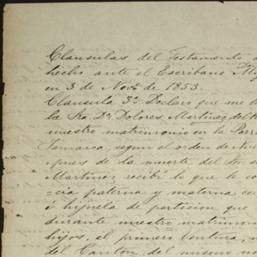 Clausulas del Testamento
hecho ante el Escribano
en 3 de Novb. de 1853.
Clausula 3ª Declaro que me
la Sra Dª Dolores Martinez del
nuestro matrimonio en la
Jamaica, segun el orden de
pues de la muerte del Sr.
Martinez, recibí lo que le
=cia paterna y materna
ó hijuela de particion que
durante nuestro matrimon
hijos, el primero Ventura,
del Canton del mismo